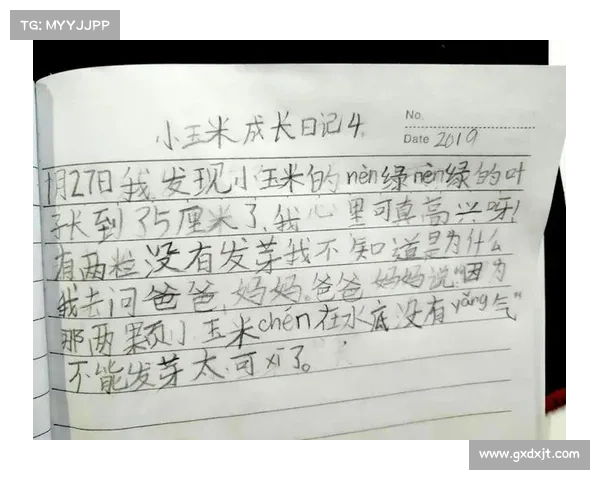 TG: MYYJJPP
小玉米成长日记4
No.
Date 2019
1月27日我发现小玉米的nèn绿nèn绿的叶
子长到了5厘米了,我心里可真高兴呀!
有两粒没有发芽我不知道是为什么
我去问爸爸,妈妈。爸爸妈妈说"因为
那两颗小玉米chén在水底没有yǎng气"
不能发芽太可xī了。
www.gxdxjt.com